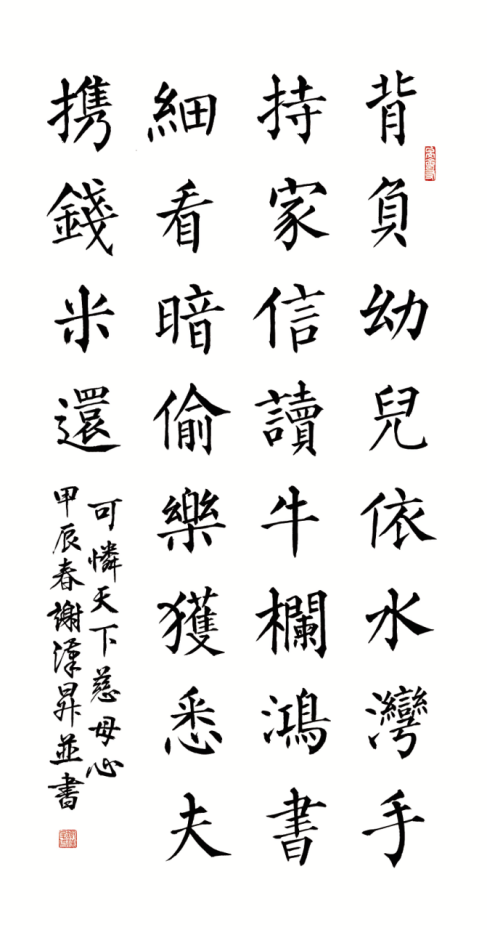 背負幼兒依水灣手
持家信讀牛欄鴻書
細看暗偷樂獲悉夫
攜錢米還
可憐天下慈母心
甲辰春謝漢昇並書